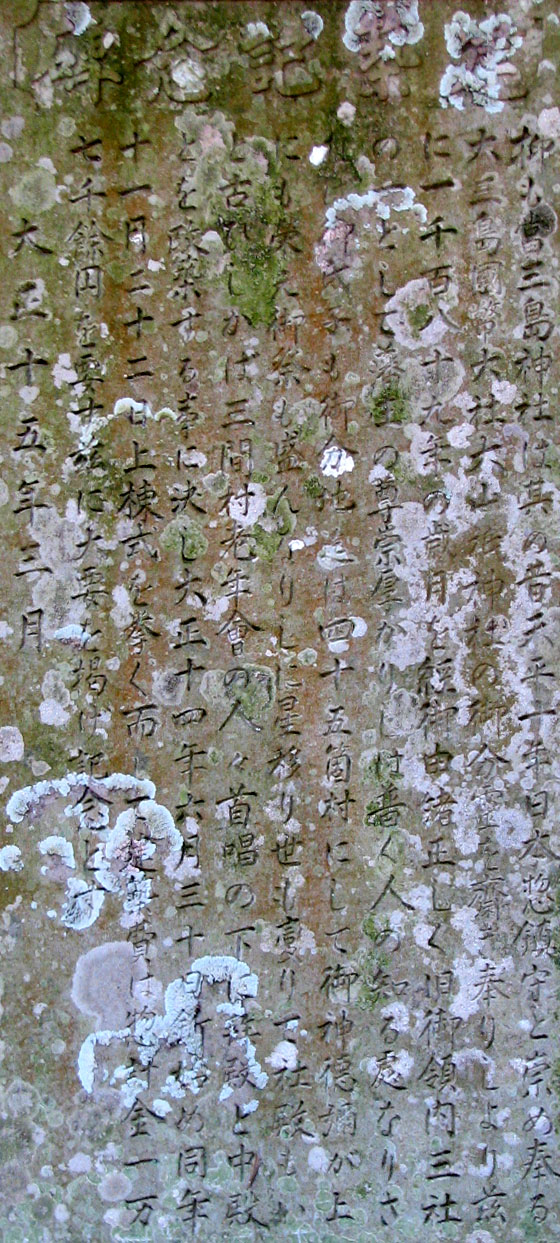 建築記念碑
抑も曾三島神社は其の昔天平十年日本惣鎮守と崇め奉る
大三島國幣大社大山祇神社の御分霊を齋き奉りしより茲
に一千百八十九年の歳月を経御由緒正しく旧御領内三社
の一として藩主の尊崇厚かりしは普く人の知る處なりさ
氏子も御分地迄は四十五箇村にして御神徳彌が上
にも栄え御祭も盛んなりしに星移り世も変りて社殿もい
と古びしかば三間村老年會の人々首唱の下に拝殿と中殿
とを改築する事に決し大正十四年六月三十日釿始め同年
十一月二十二日上棟式を挙く而して建築費は惣計金一万
七千餘円を要す茲に大要を掲げ記念とす
大正十五年三月